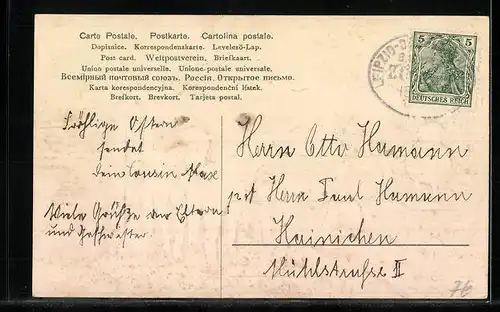 Carte Postale. Postkarte. Cartolina postale.
Dopisnice. Korrespondenskarte. Levelező-Lap.
Post card. Weltpostverein. Briefkaart.
Union postale universelle. Unione postale universale.
Всемірный почтовый союзъ. Россія. Открытое письмо.
Karta korespondencyjna. Korespondenční lístek.
Brefkort. Brevkort. Tarjeta postal.
5 5
DEUTSCHES REICH
LEIPZIG-
Fröhlige Ostern
sendet
dein Cousin Max
Viele Grüße an Eltern
und Geschwister.
Herrn Otto Hamann
Herrn Paul Hamann
Hainichen
Mühlstraße II
76